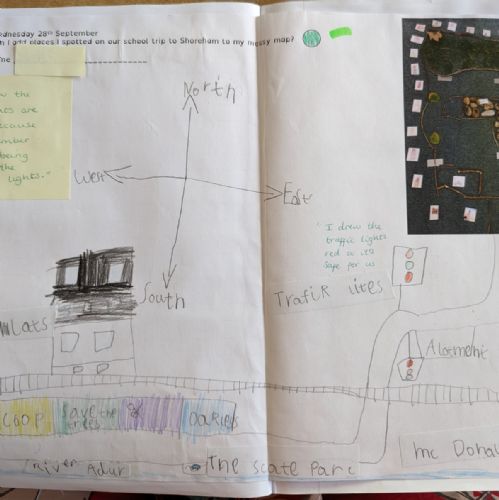 Wednesday 28th September
I add places I spotted on our school trip to Shoreham to my messy map?
the
are
being
the
lights."
North
West
East
South
"I drew the
traffic lights
red so its
safe for us
Trafik lites
Flats
Alotment
COOP
Save the
trees
River Adur
The scate Parc
mc Donal